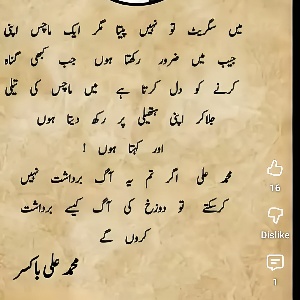 میں سگریٹ تو نہیں پیتا مگر ایک ماچس اپنی
جیب میں ضرور رکھتا ہوں جب کبھی گناہ
کرنے کو دل کرتا ہے میں ماچس کی تیلی
جلاکر اپنی ہتھیلی پر رکھ دیتا ہوں
اور کہتا ہوں !
محمد علی اگر تم یہ آگ برداشت نہیں
کرسکتے تو دوزخ کی آگ کیسے برداشت
کروں گے
محمد علی باکسر
16
Dislike
1